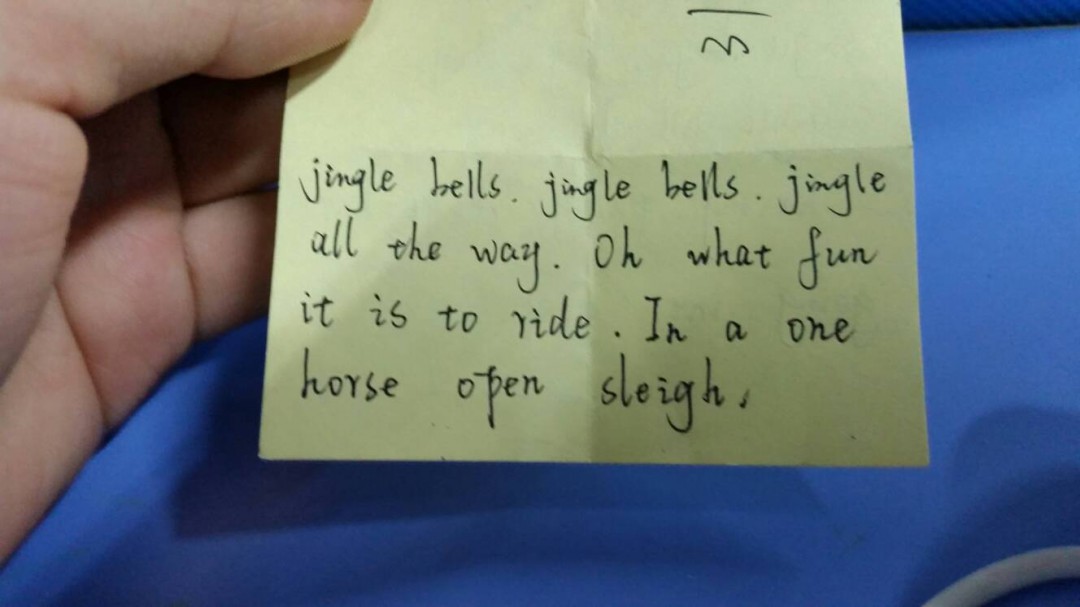 31
jingle bells. jingle bells. jingle
all the way. Oh what fun
it is to ride. In a one
horse open sleigh.